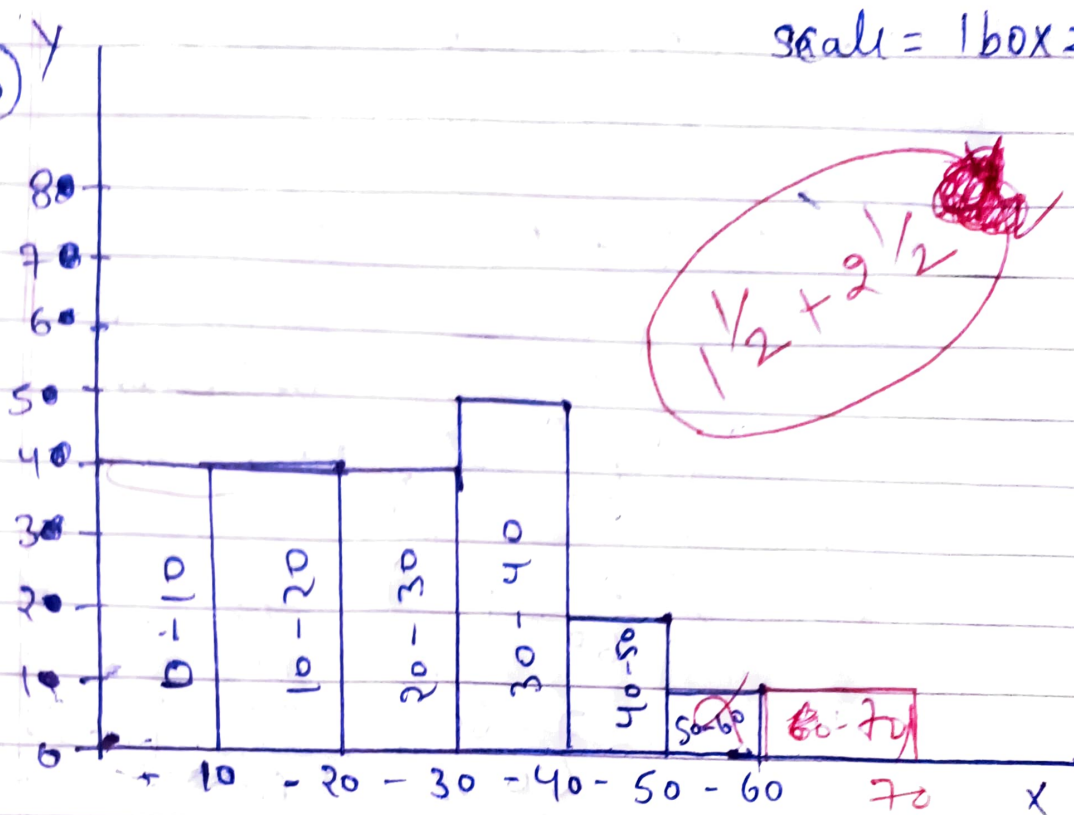 Y
scale = 1box =
80
70
60
50
40
30
20
10
0
1 1/2 + 2 1/2
0-10
10-20
20-30
30-40
40-50
50-60
60-70
10 - 20 - 30 - 40 - 50 - 60 70 X